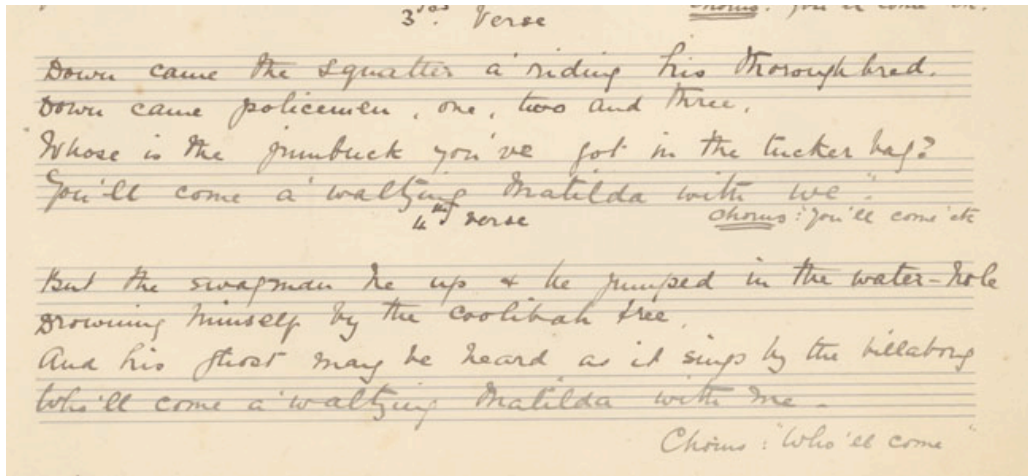 3rd. Verse
Chorus: You'll come etc.
Down came the squatter a' riding his thoroughbred.
Down came policemen, one, two and three.
Whose is the jumbuck you've got in the tucker bag?
You'll come a' waltzing Matilda with we".
4th verse
Chorus: "You'll come etc
But the swagman he up & he jumped in the water-hole
Drowning himself by the coolibah tree.
And his ghost may be heard as it sings by the billabong
Who'll come a' waltzing Matilda with me -
Chorus: "Who'll come"